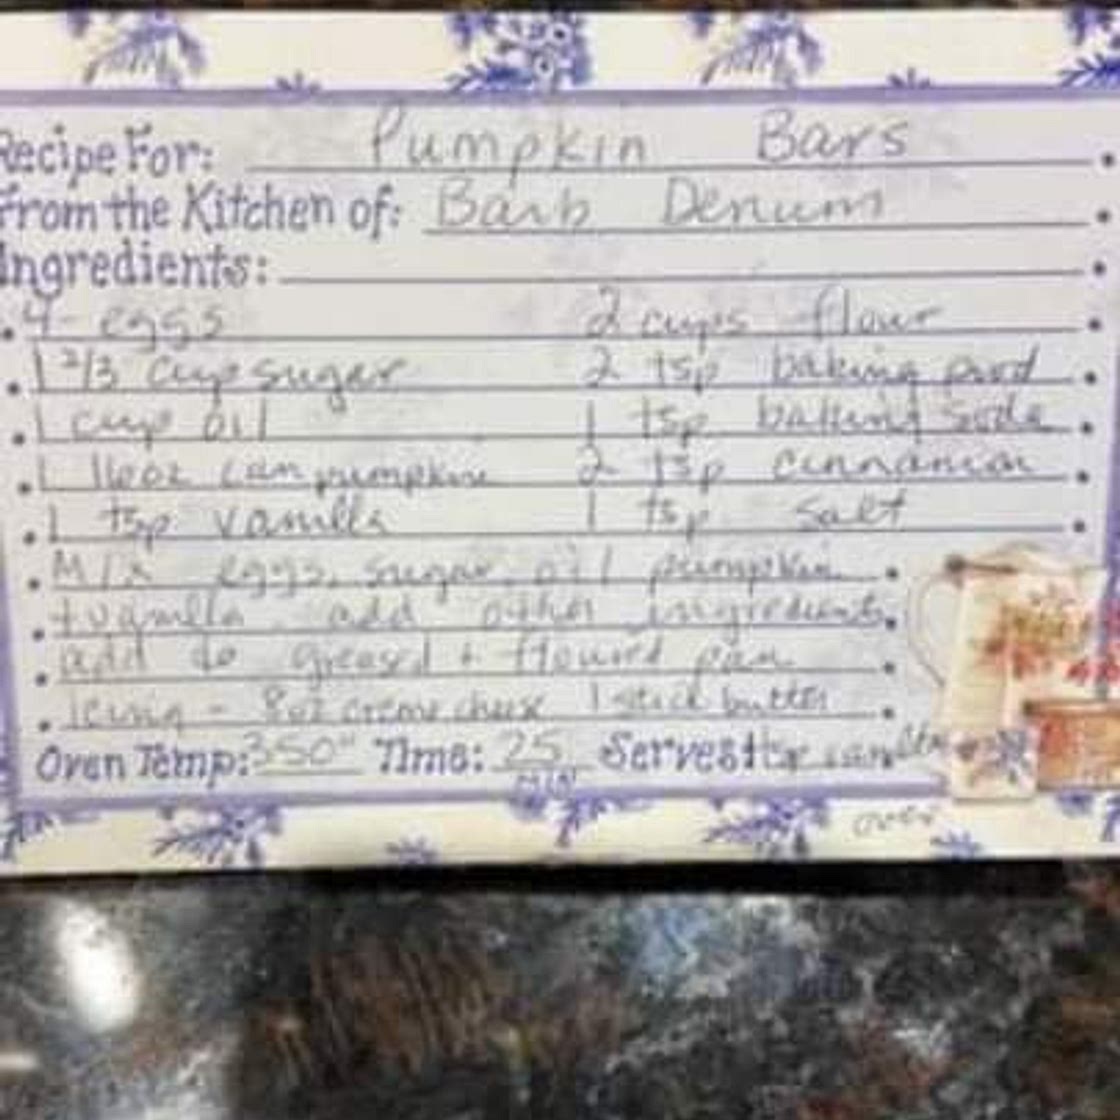 Recipe For: Pumpkin Bars
From the Kitchen of: Barb Denum
Ingredients:
4 - eggs 2 cups flour
1 2/3 cup sugar 2 tsp baking powd
1 cup oil 1 tsp baking soda
1 16oz can pumpkin 2 tsp cinnamon
1 tsp vanilla 1 tsp salt
Mix eggs, sugar, oil pumpkin
+ vanilla. add other ingredients
add to greased + floured pan
Icing - 8oz creme cheese 1 stick butter
Oven Temp: 350° Time: 25 Serves: 1 tsp vanilla
min
over